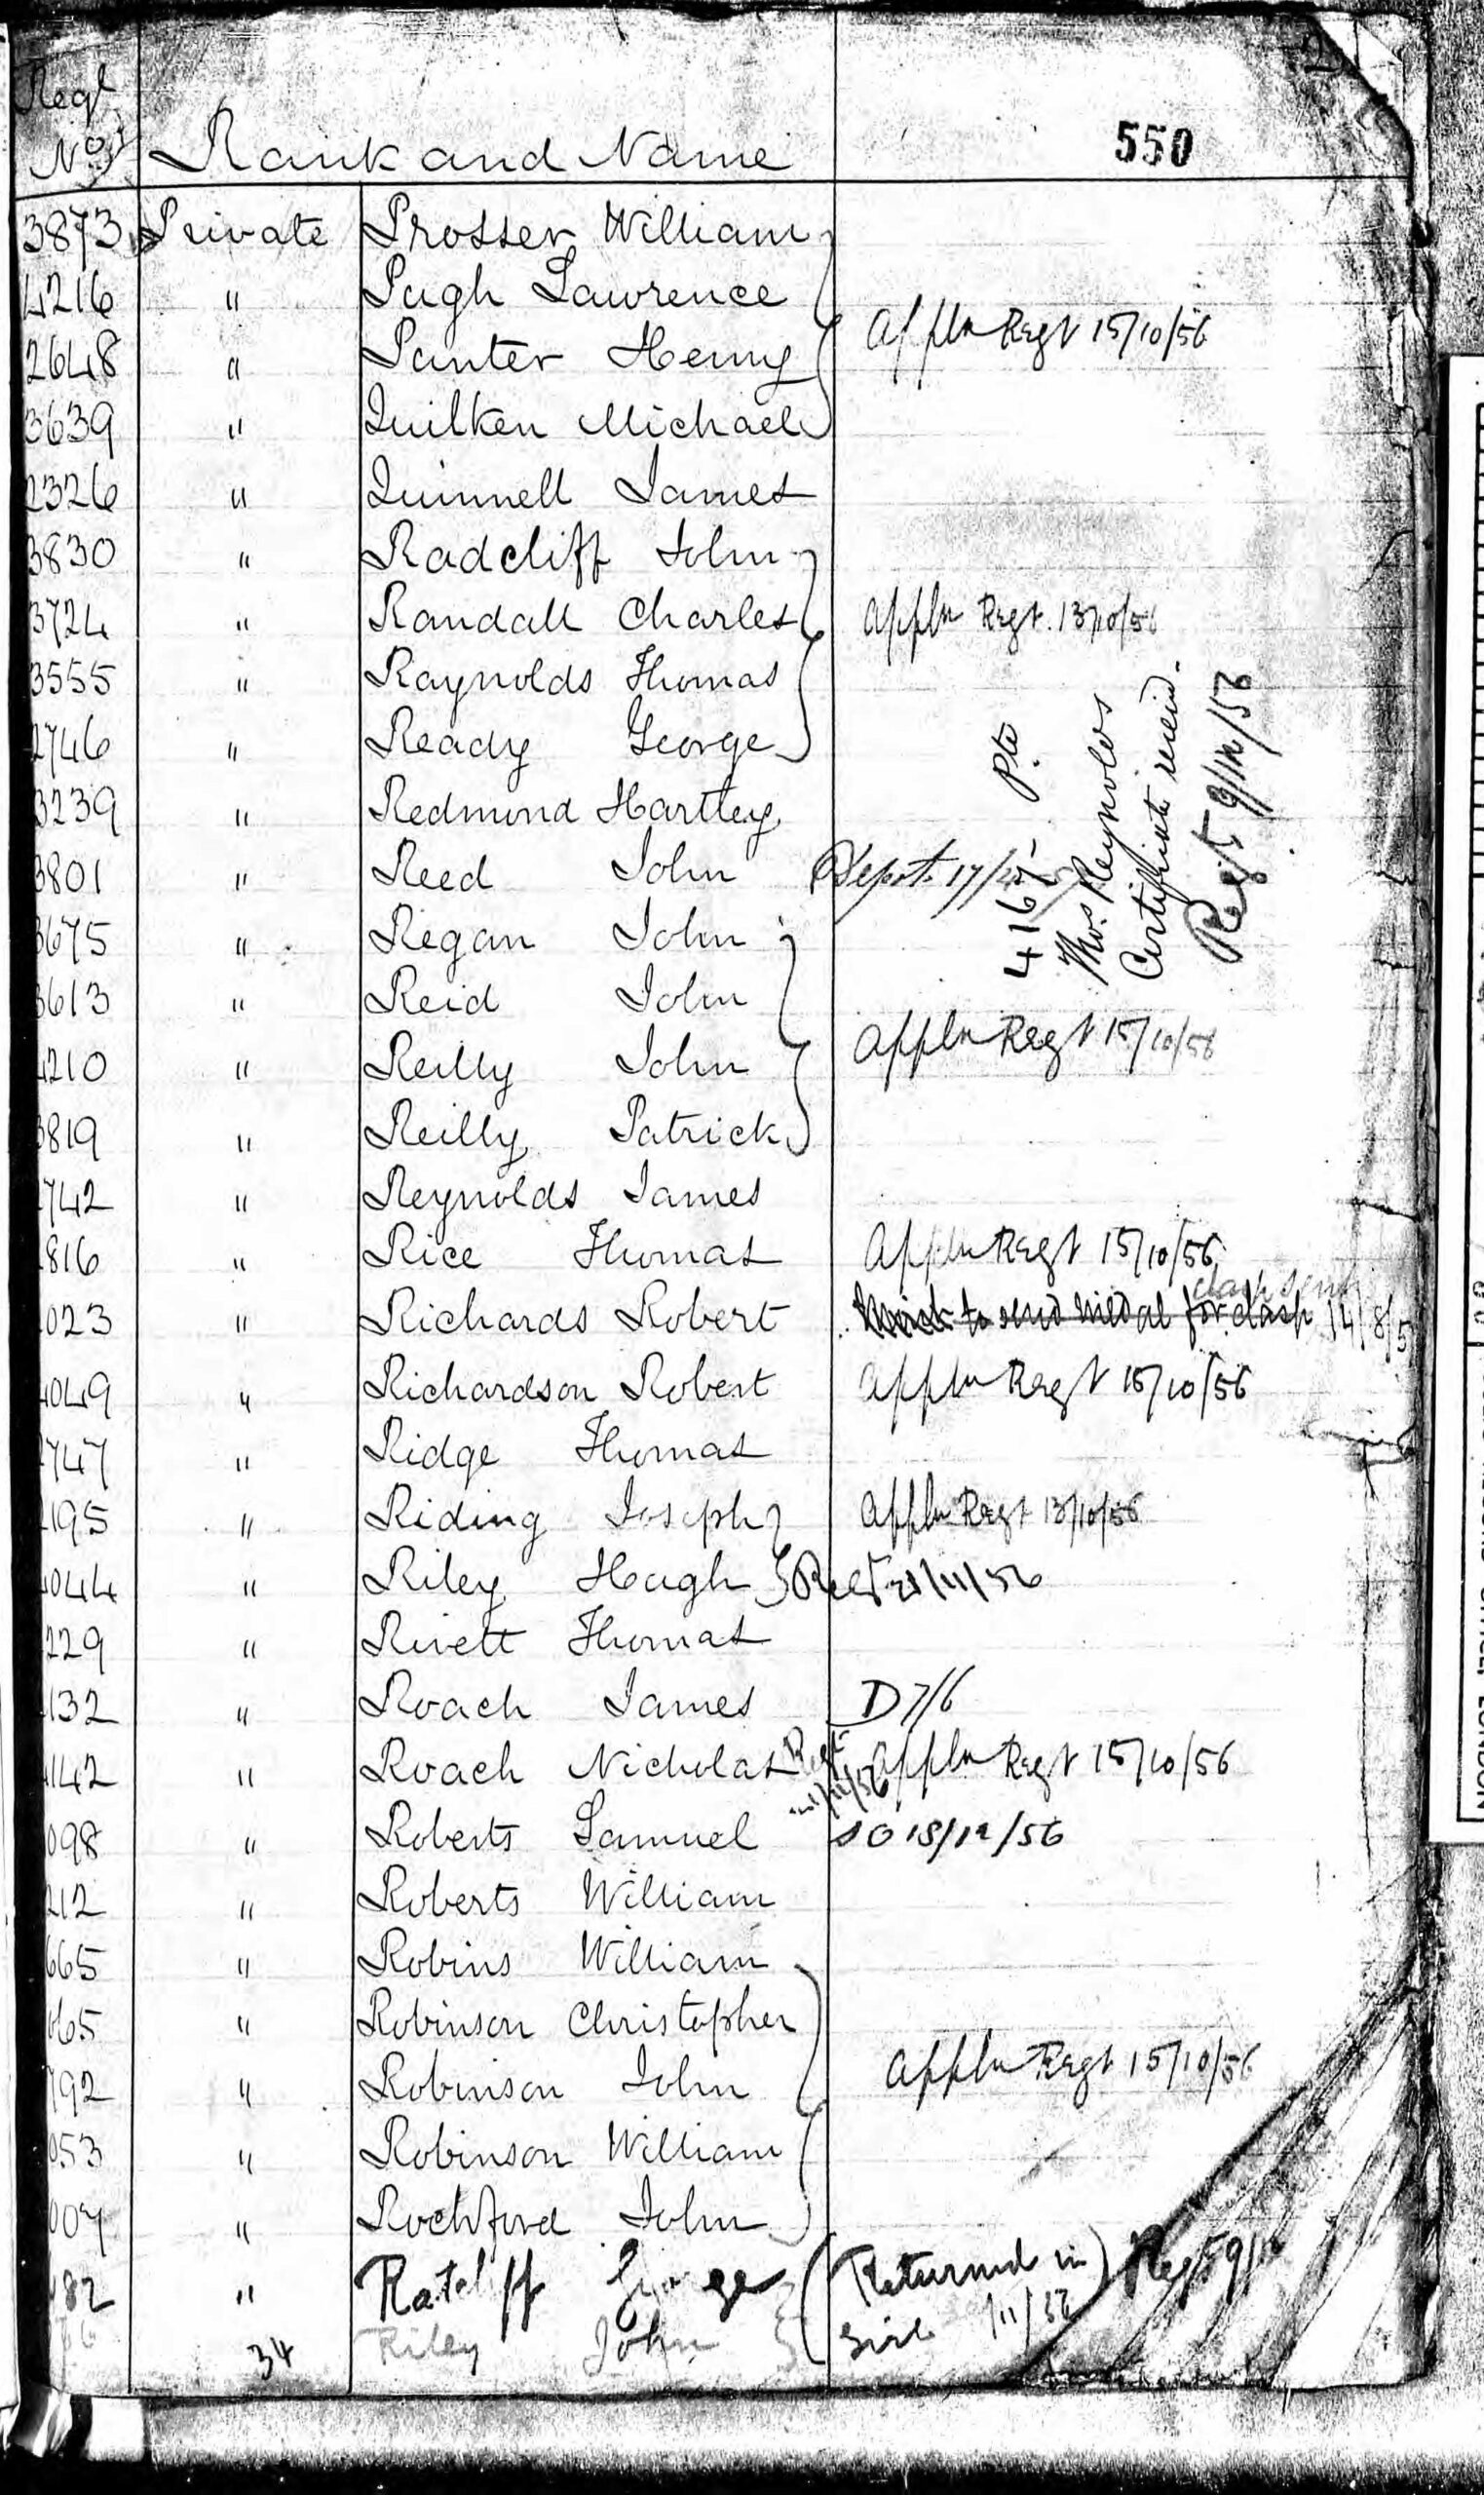 2
Regl Nos Rank and Name 550
3873 Private Prosser William
4216 " Pugh Lawrence
Appln Regt 15/10/56
2648 " Punter Henry
3639 " Quilken Michael
2326 " Quinnell James
3830 " Radcliff John
3724 " Randall Charles Appln Regt. 13/10/56
3555 " Raynolds Thomas
2746 " Ready George
3239 " Redmond Hartley
3801 " Reed John Depot. 17/
4167 Pte
Thos. Reynolds
Certificate
Regt 9/12/56
3675 " Regan John
3613 " Reid John
Appln Regt 15/10/56
4210 " Reilly John
3819 " Reilly Patrick
742 " Reynolds James
816 " Rice Thomas Appln Regt 15/10/56
clasp sent
023 " Richards Robert to send medal for clasp 14/8/5
4049 " Richardson Robert Appln Regt 15/10/56
747 " Ridge Thomas
195 " Riding Joseph Appln Regt 13/10/56
4044 " Riley Hugh Regt 21/11/56
229 " Rivett Thomas
132 " Roach James D 7/6
4142 " Roach Nicholas Regt /11/56 Appln Regt 15/10/56
098 " Roberts Samuel SO 18/12/56
212 " Roberts William
665 " Robins William
665 " Robinson Christopher
Appln Regt 15/10/56
792 " Robinson John
053 " Robinson William
007 " Rochford John
482 " Ratcliff George (Returned in) Regt 9/1
34 Riley John /11/56